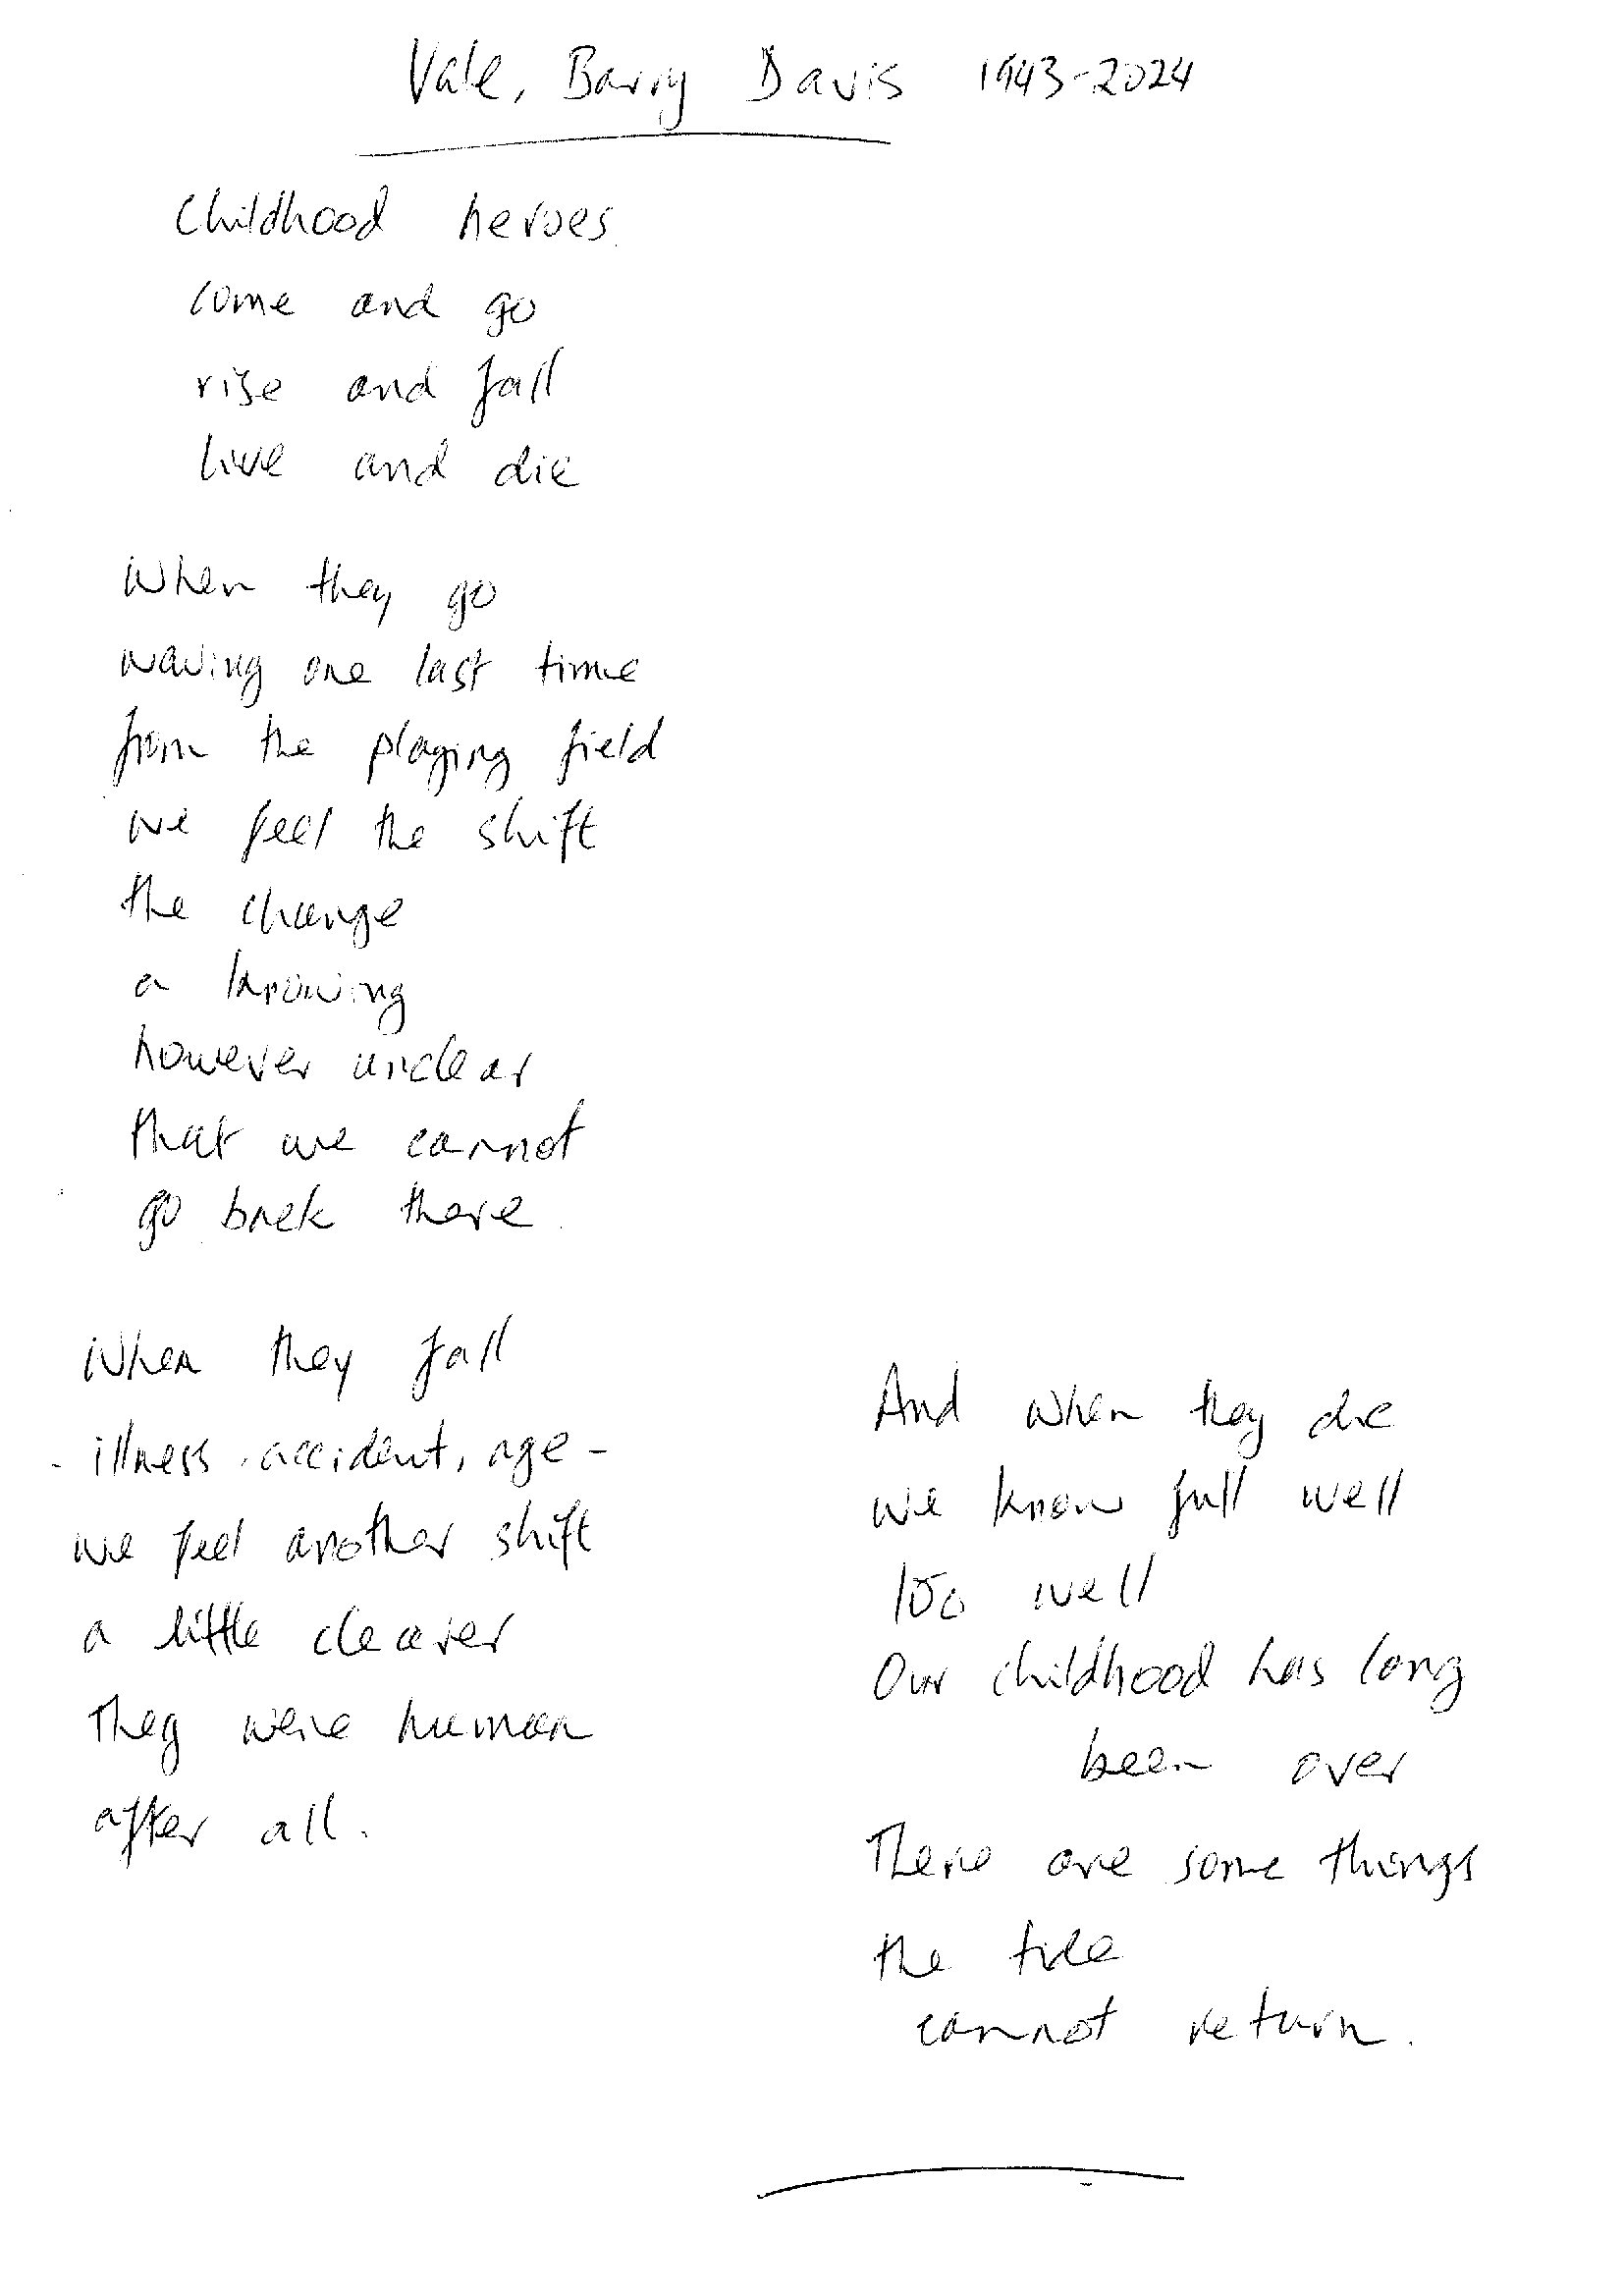 Vale, Barry Davis 1943-2024
Childhood heroes
come and go
rise and fall
live and die
When they go
waving one last time
from the playing field
we feel the shift
the change
a knowing
however unclear
that we cannot
go back there.
When they fall
- illness, accident, age -
we feel another shift
a little clearer
They were human
after all.
And when they die
we know full well
too well
Our childhood has long
been over
There are some things
the tide
cannot return.